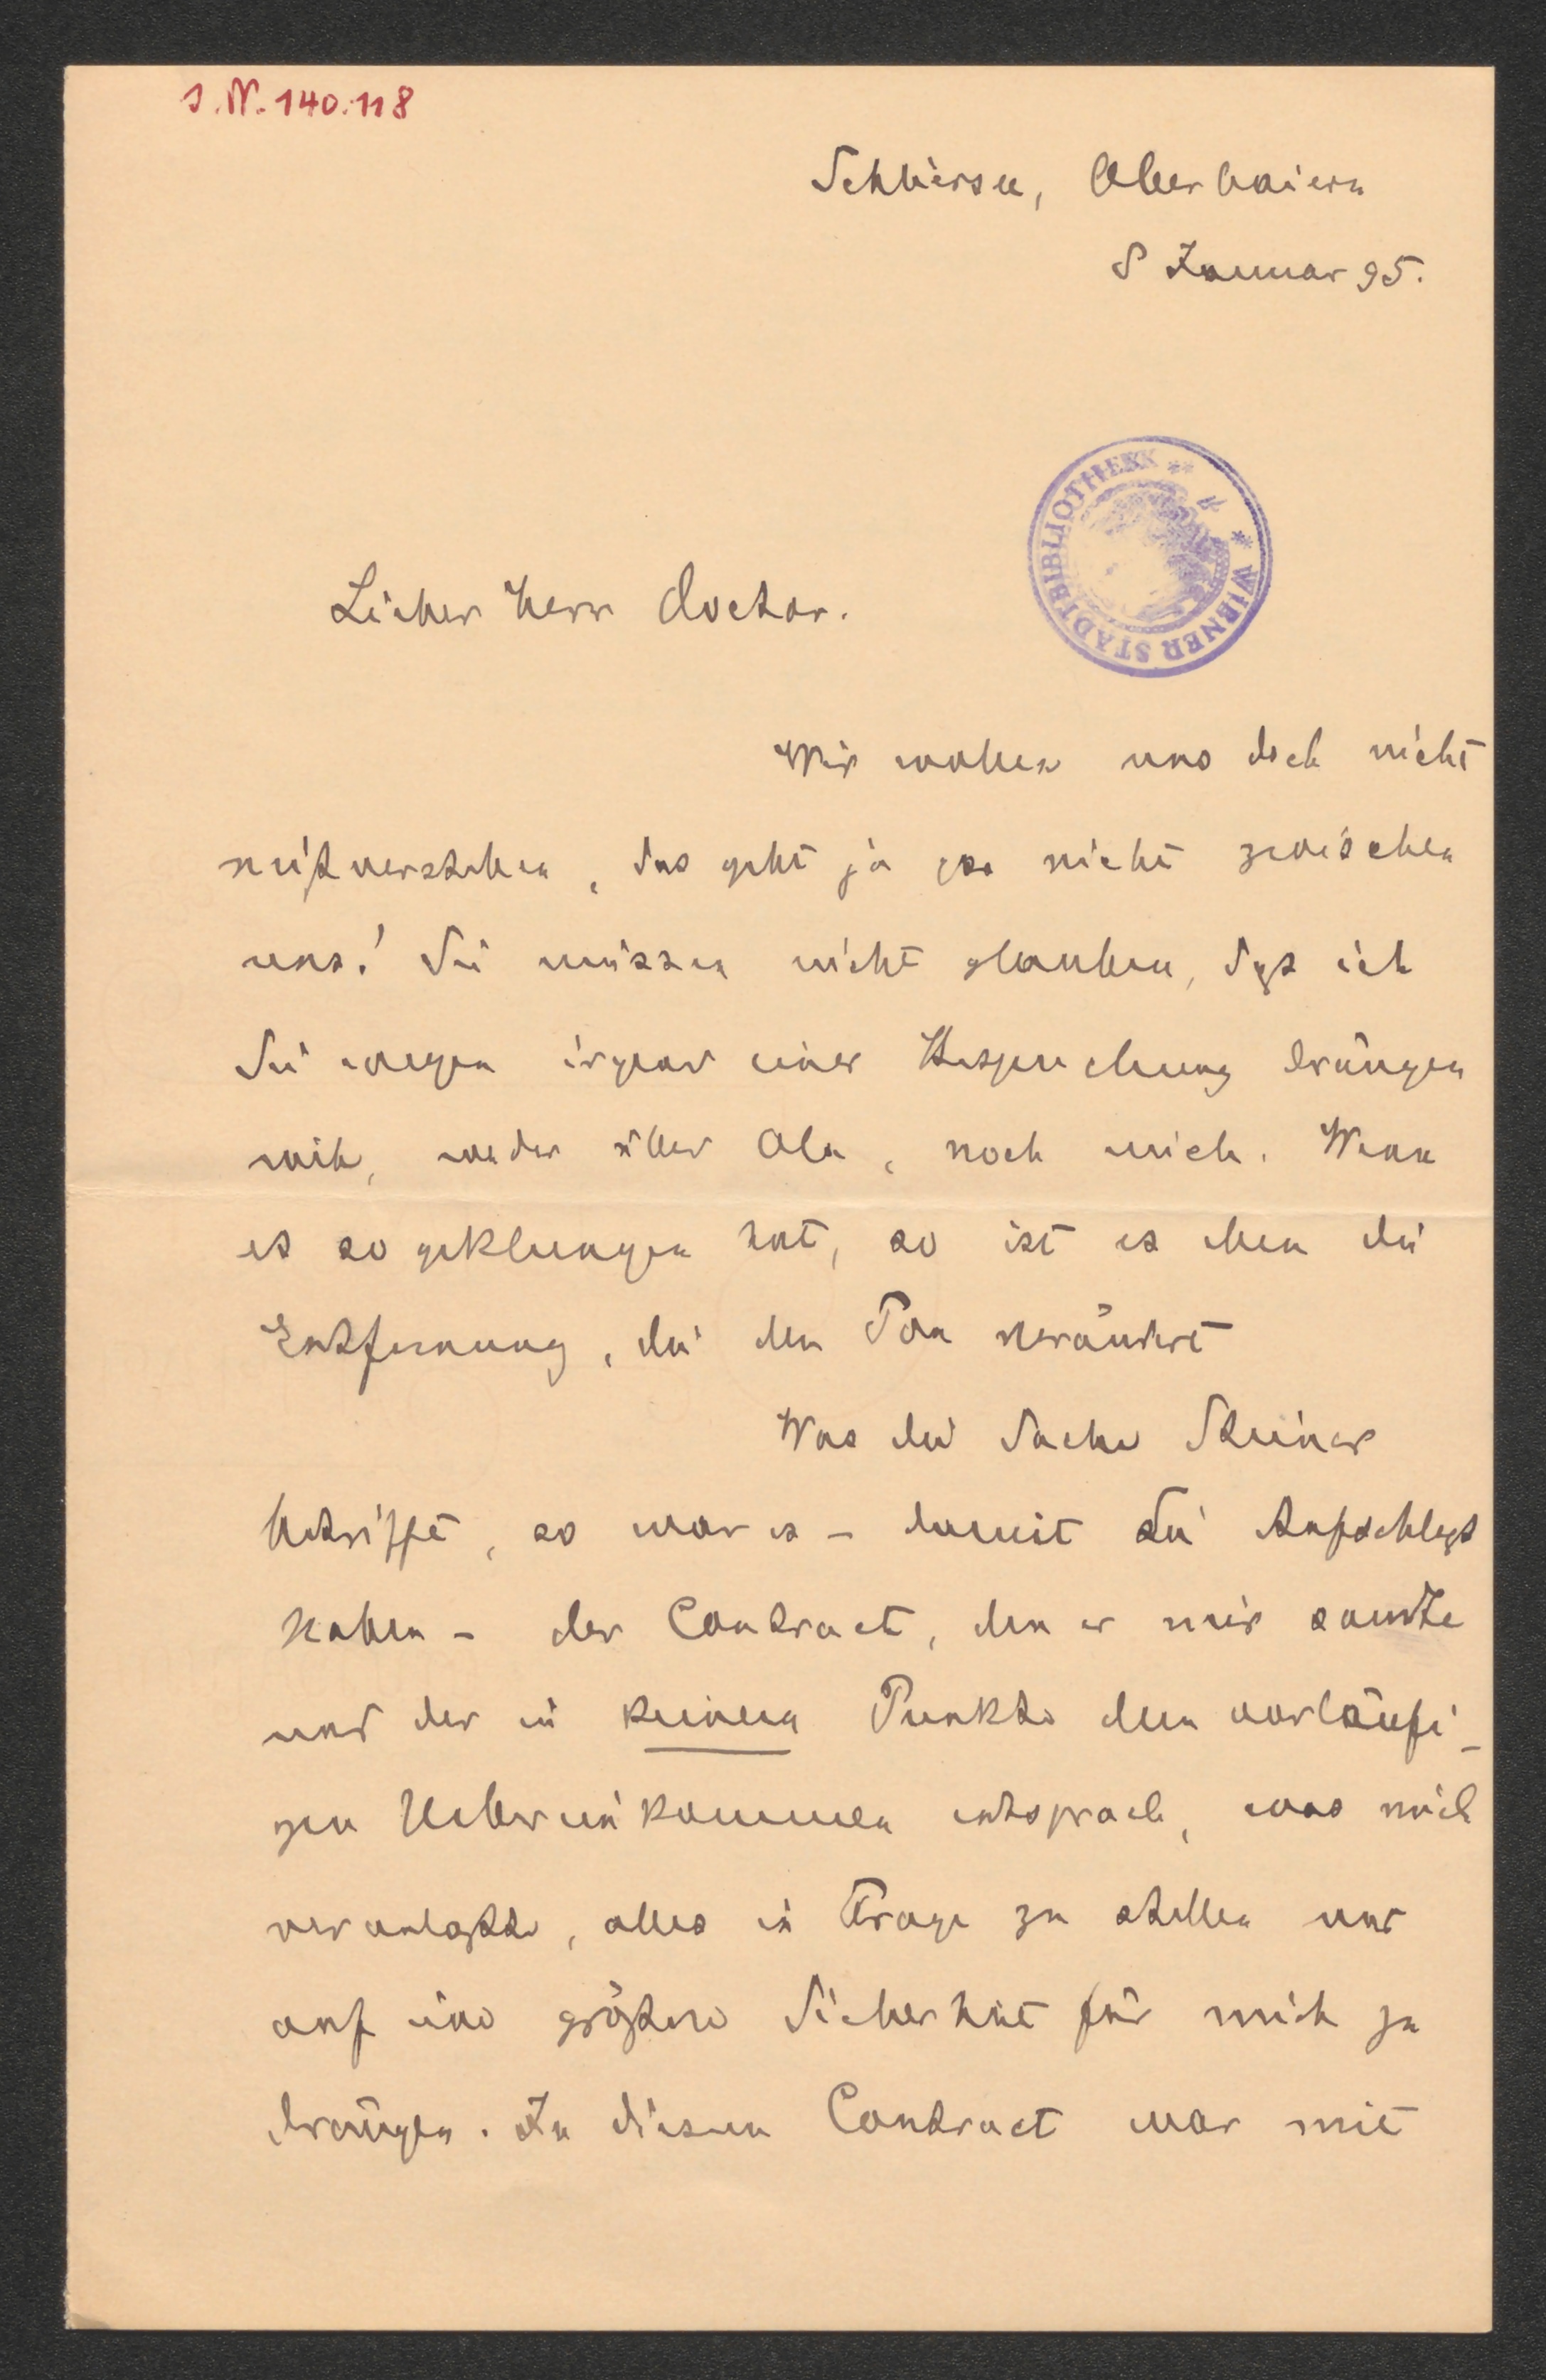 J.N. 140.118
Schliersee, Oberbaiern
8 Januar 95.
WIENER STADTBIBLIOTHEK
Lieber Herr Doctor.
Wir wollen uns doch nicht
mißverstehen, das geht ja gar nicht zwischen
uns! Sie müssen nicht glauben, dass ich
Sie wegen irgend einer Besprechung drängen
will, weder über Ola, noch mich. Wenn
es so geklungen hat, so ist es eben die
Entfernung, die den Ton verändert
Was die Sache Steiner
betrifft, so war es – damit Sie Aufschluss
haben – der Contract, den er mir sandte
und der in keinem Punkte dem vorläufi-
gen Uebereinkommen entsprach, was mich
veranlasste, alles in Frage zu stellen und
auf eine grössere Sicherheit für mich zu
drängen. In diesem Contract war mit